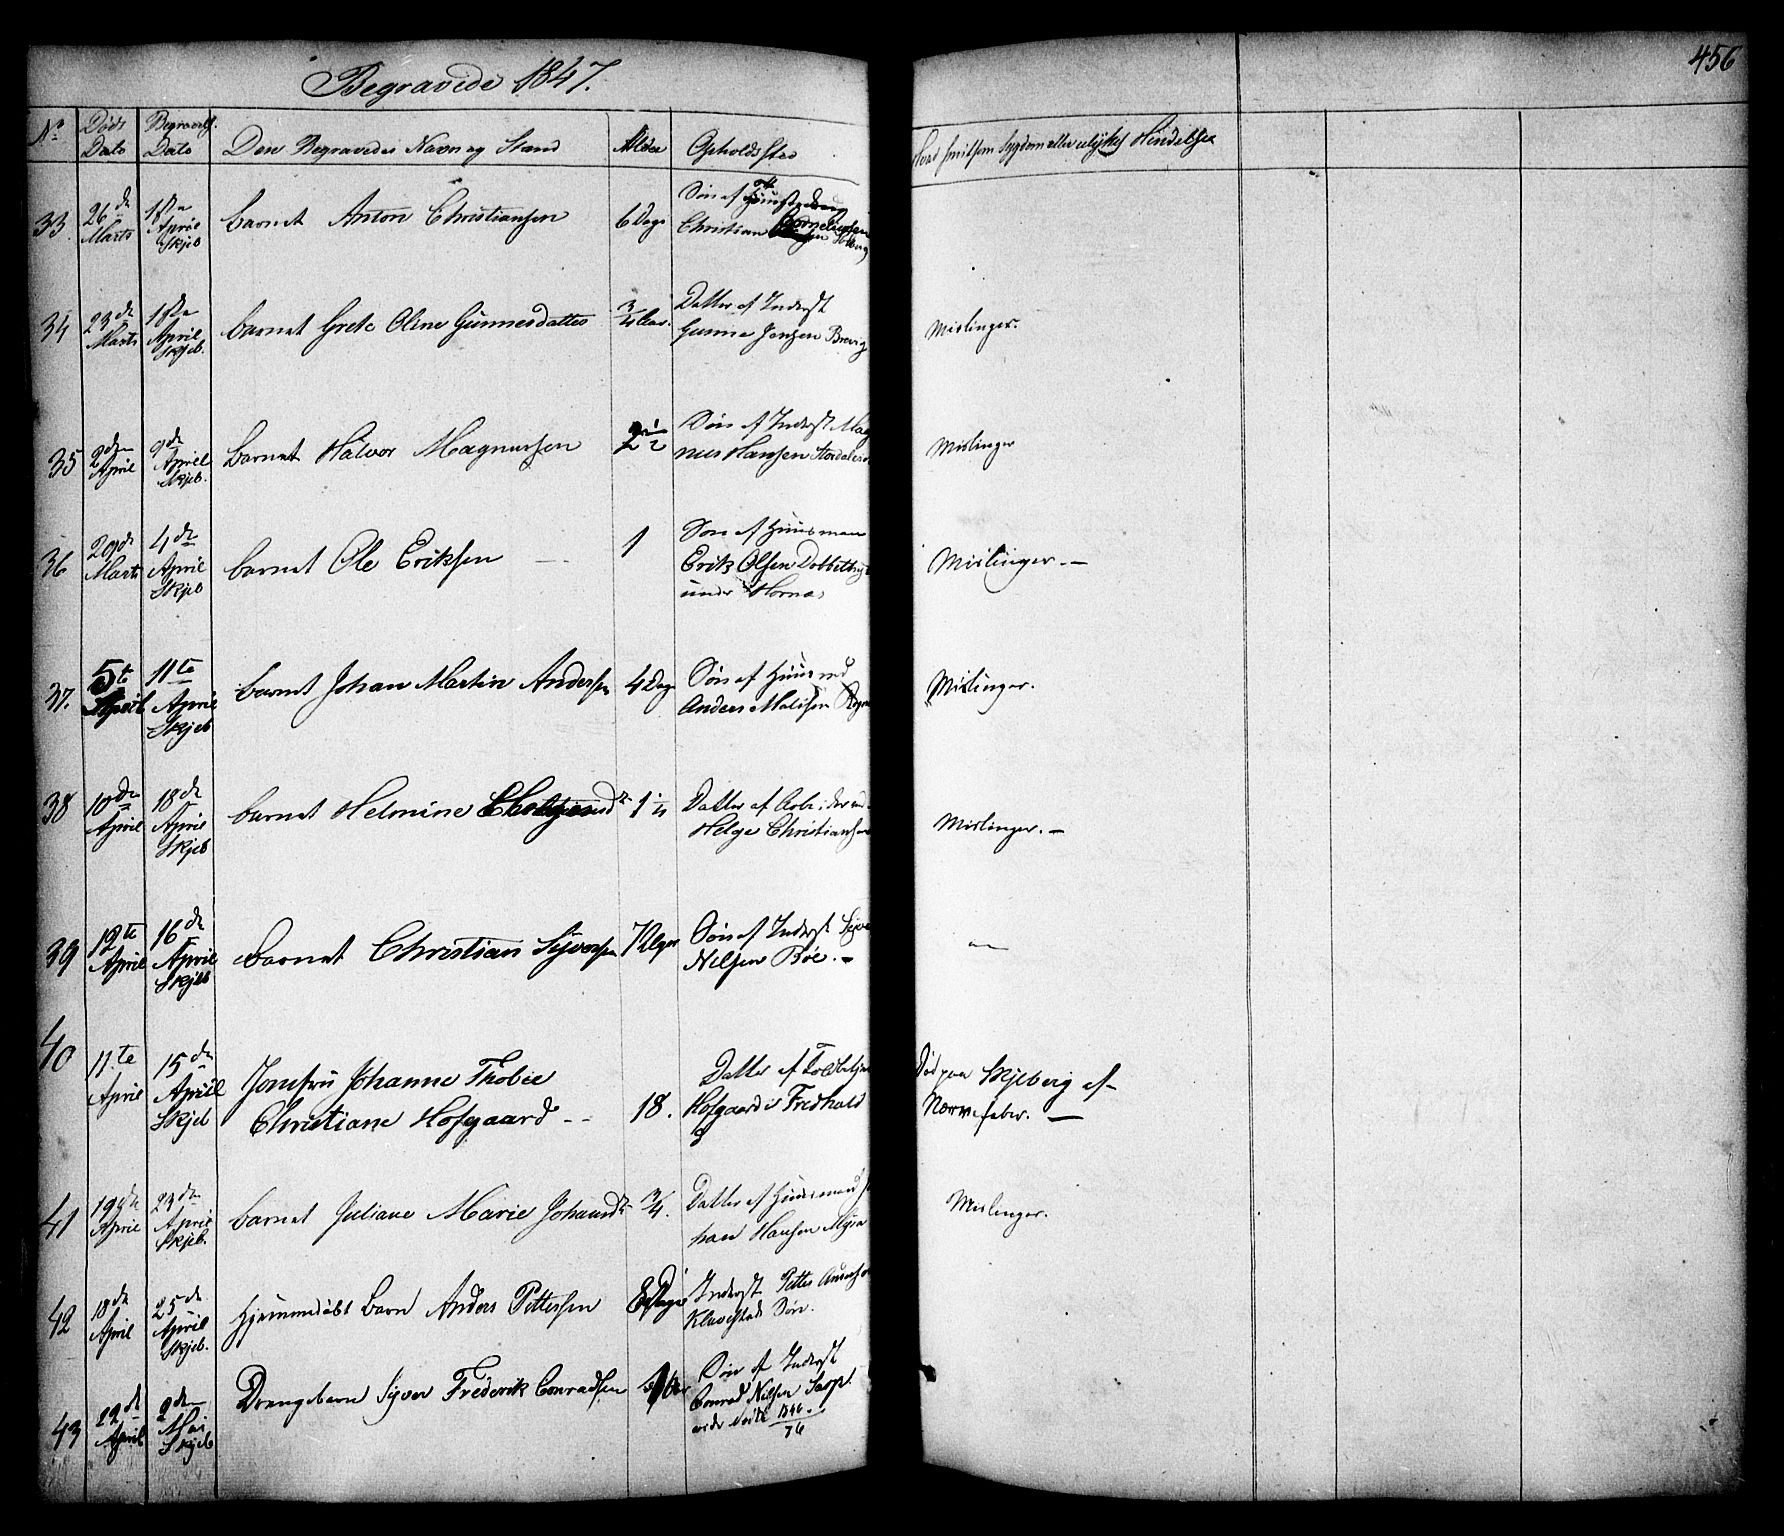 Begravede 1847.
456
No
Døds Dato
Begravels. Dato
Den Begravedes Navn og Stand
Alder
Opholdssted
Sygdom eller ulykkes Hendelse
33. 26de Marts 1ste April Skjeb barnet Anton Christiansen 6 Dage Søn af
Christian Solberg
34 23de Marts 1ste April Skjeb. barnet Grete Oline Gunnesdatter 3/4 Aar. Datter af Inderst
Gunne Jensen Brevig
Mislinger.
35 2den April 9de April Skjeb. barnet Halvor Magnussen 2 1/2 Søn af Inderst Mag
nus Hansen
Mislinger
36 29de Marts 4de April Skjeb barnet Ole Eriksen 1 Søn af Huusman
Erik Olsen
under Hornæs
Mislinger. -
37. 5te April 11te April Skjeb barnet Johan Martin Andersen 4 Dage Søn af Huusmd
Anders
Mislinger.
38 10de April 18de April Skjeb barnet Helmine 1 1/4 Datter af Arbeider
Helge Christiansen
Mislinger. -
39 12te April 16de April Skjeb barnet Christian Syversen 7 Uger Søn af Inderst Syve
Nielsen Böe. -
40 11te April 15de April Skjeb Jomfru Johanne Thobie
Christiane Hofgaard - - 18. Datter af Toldbetjen
Hofgaard i Fredhald
Død paa Skjeberg af
Nervefeber. -
41 19de April 23de April Skjeb. barnet Juliane Marie Johansd 3/4. Datter af Huusmand Jo
han Hansen Myra
Mislinger.
42 18de April 25de April Skjeb. Hjemmedøbt Barn Anders Pettersen 8 Dage Inderst Petter
Klavestad Søn.
43 22de April 2den Mai Skjeb Drengebarn Syver Frederik Conradsen Søn af Inderst
Conrad Nilsen Sarp.
1846
76